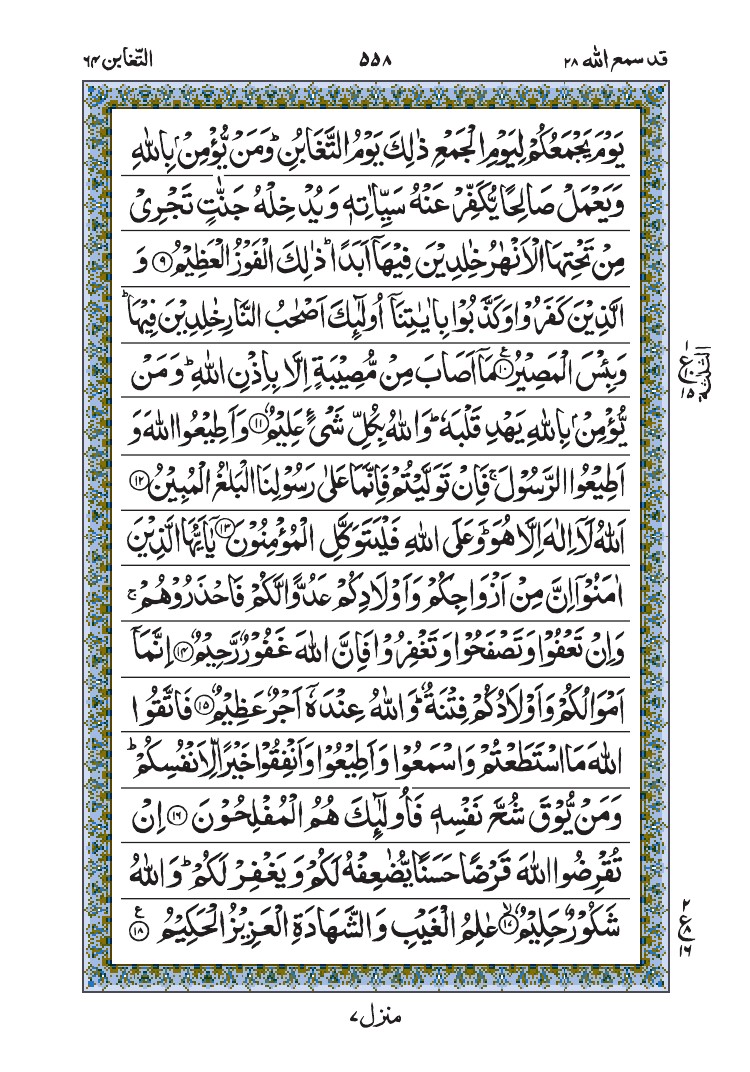 قد سمع الله ۲۸ ۵۵۸ التّغابن ۶۴
يَوْمَ يَجْمَعُكُمْ لِيَوْمِ الْجَمْعِ ذٰلِكَ يَوْمُ التَّغَابُنِ ؕ وَمَنْ يُّؤْمِنْۢ بِاللّٰهِ
وَيَعْمَلْ صَالِحًا يُّكَفِّرْ عَنْهُ سَيِّاٰتِهٖ وَيُدْخِلْهُ جَنّٰتٍ تَجْرِيْ
مِنْ تَحْتِهَا الْاَنْهٰرُ خٰلِدِيْنَ فِيْهَاۤ اَبَدًا ؕ ذٰلِكَ الْفَوْزُ الْعَظِيْمُ ۝۹ وَ
الَّذِيْنَ كَفَرُوْا وَكَذَّبُوْا بِاٰيٰتِنَاۤ اُولٰٓئِكَ اَصْحٰبُ النَّارِ خٰلِدِيْنَ فِيْهَا ؕ
وَبِئْسَ الْمَصِيْرُ ۝۱۰ مَاۤ اَصَابَ مِنْ مُّصِيْبَةٍ اِلَّا بِاِذْنِ اللّٰهِ ؕ وَمَنْ
يُّؤْمِنْۢ بِاللّٰهِ يَهْدِ قَلْبَهٗ ؕ وَاللّٰهُ بِكُلِّ شَيْءٍ عَلِيْمٌ ۝۱۱ وَاَطِيْعُوا اللّٰهَ وَ
اَطِيْعُوا الرَّسُوْلَ ۚ فَاِنْ تَوَلَّيْتُمْ فَاِنَّمَا عَلٰى رَسُوْلِنَا الْبَلٰغُ الْمُبِيْنُ ۝۱۲
اَللّٰهُ لَاۤ اِلٰهَ اِلَّا هُوَ ؕ وَعَلَى اللّٰهِ فَلْيَتَوَكَّلِ الْمُؤْمِنُوْنَ ۝۱۳ يٰۤاَيُّهَا الَّذِيْنَ
اٰمَنُوْۤا اِنَّ مِنْ اَزْوَاجِكُمْ وَاَوْلَادِكُمْ عَدُوًّا لَّكُمْ فَاحْذَرُوْهُمْ ۚ
وَاِنْ تَعْفُوْا وَتَصْفَحُوْا وَتَغْفِرُوْا فَاِنَّ اللّٰهَ غَفُوْرٌ رَّحِيْمٌ ۝۱۴ اِنَّمَاۤ
اَمْوَالُكُمْ وَاَوْلَادُكُمْ فِتْنَةٌ ؕ وَاللّٰهُ عِنْدَهٗۤ اَجْرٌ عَظِيْمٌ ۝۱۵ فَاتَّقُوا
اللّٰهَ مَا اسْتَطَعْتُمْ وَاسْمَعُوْا وَاَطِيْعُوْا وَاَنْفِقُوْا خَيْرًا لِّاَنْفُسِكُمْ ؕ
وَمَنْ يُّوْقَ شُحَّ نَفْسِهٖ فَاُولٰٓئِكَ هُمُ الْمُفْلِحُوْنَ ۝۱۶ اِنْ
تُقْرِضُوا اللّٰهَ قَرْضًا حَسَنًا يُّضٰعِفْهُ لَكُمْ وَيَغْفِرْ لَكُمْ ؕ وَاللّٰهُ
شَكُوْرٌ حَلِيْمٌ ۝۱۷ عٰلِمُ الْغَيْبِ وَالشَّهَادَةِ الْعَزِيْزُ الْحَكِيْمُ ۝۱۸ ع
۱
ع
۱۵
الثلثة
۲
ع
۸
۱۶
منزل ۷